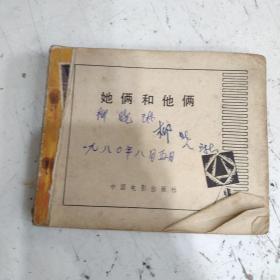 她俩和他俩
柳晓
柳晓
一九八〇年八月五日
中国电影出版社